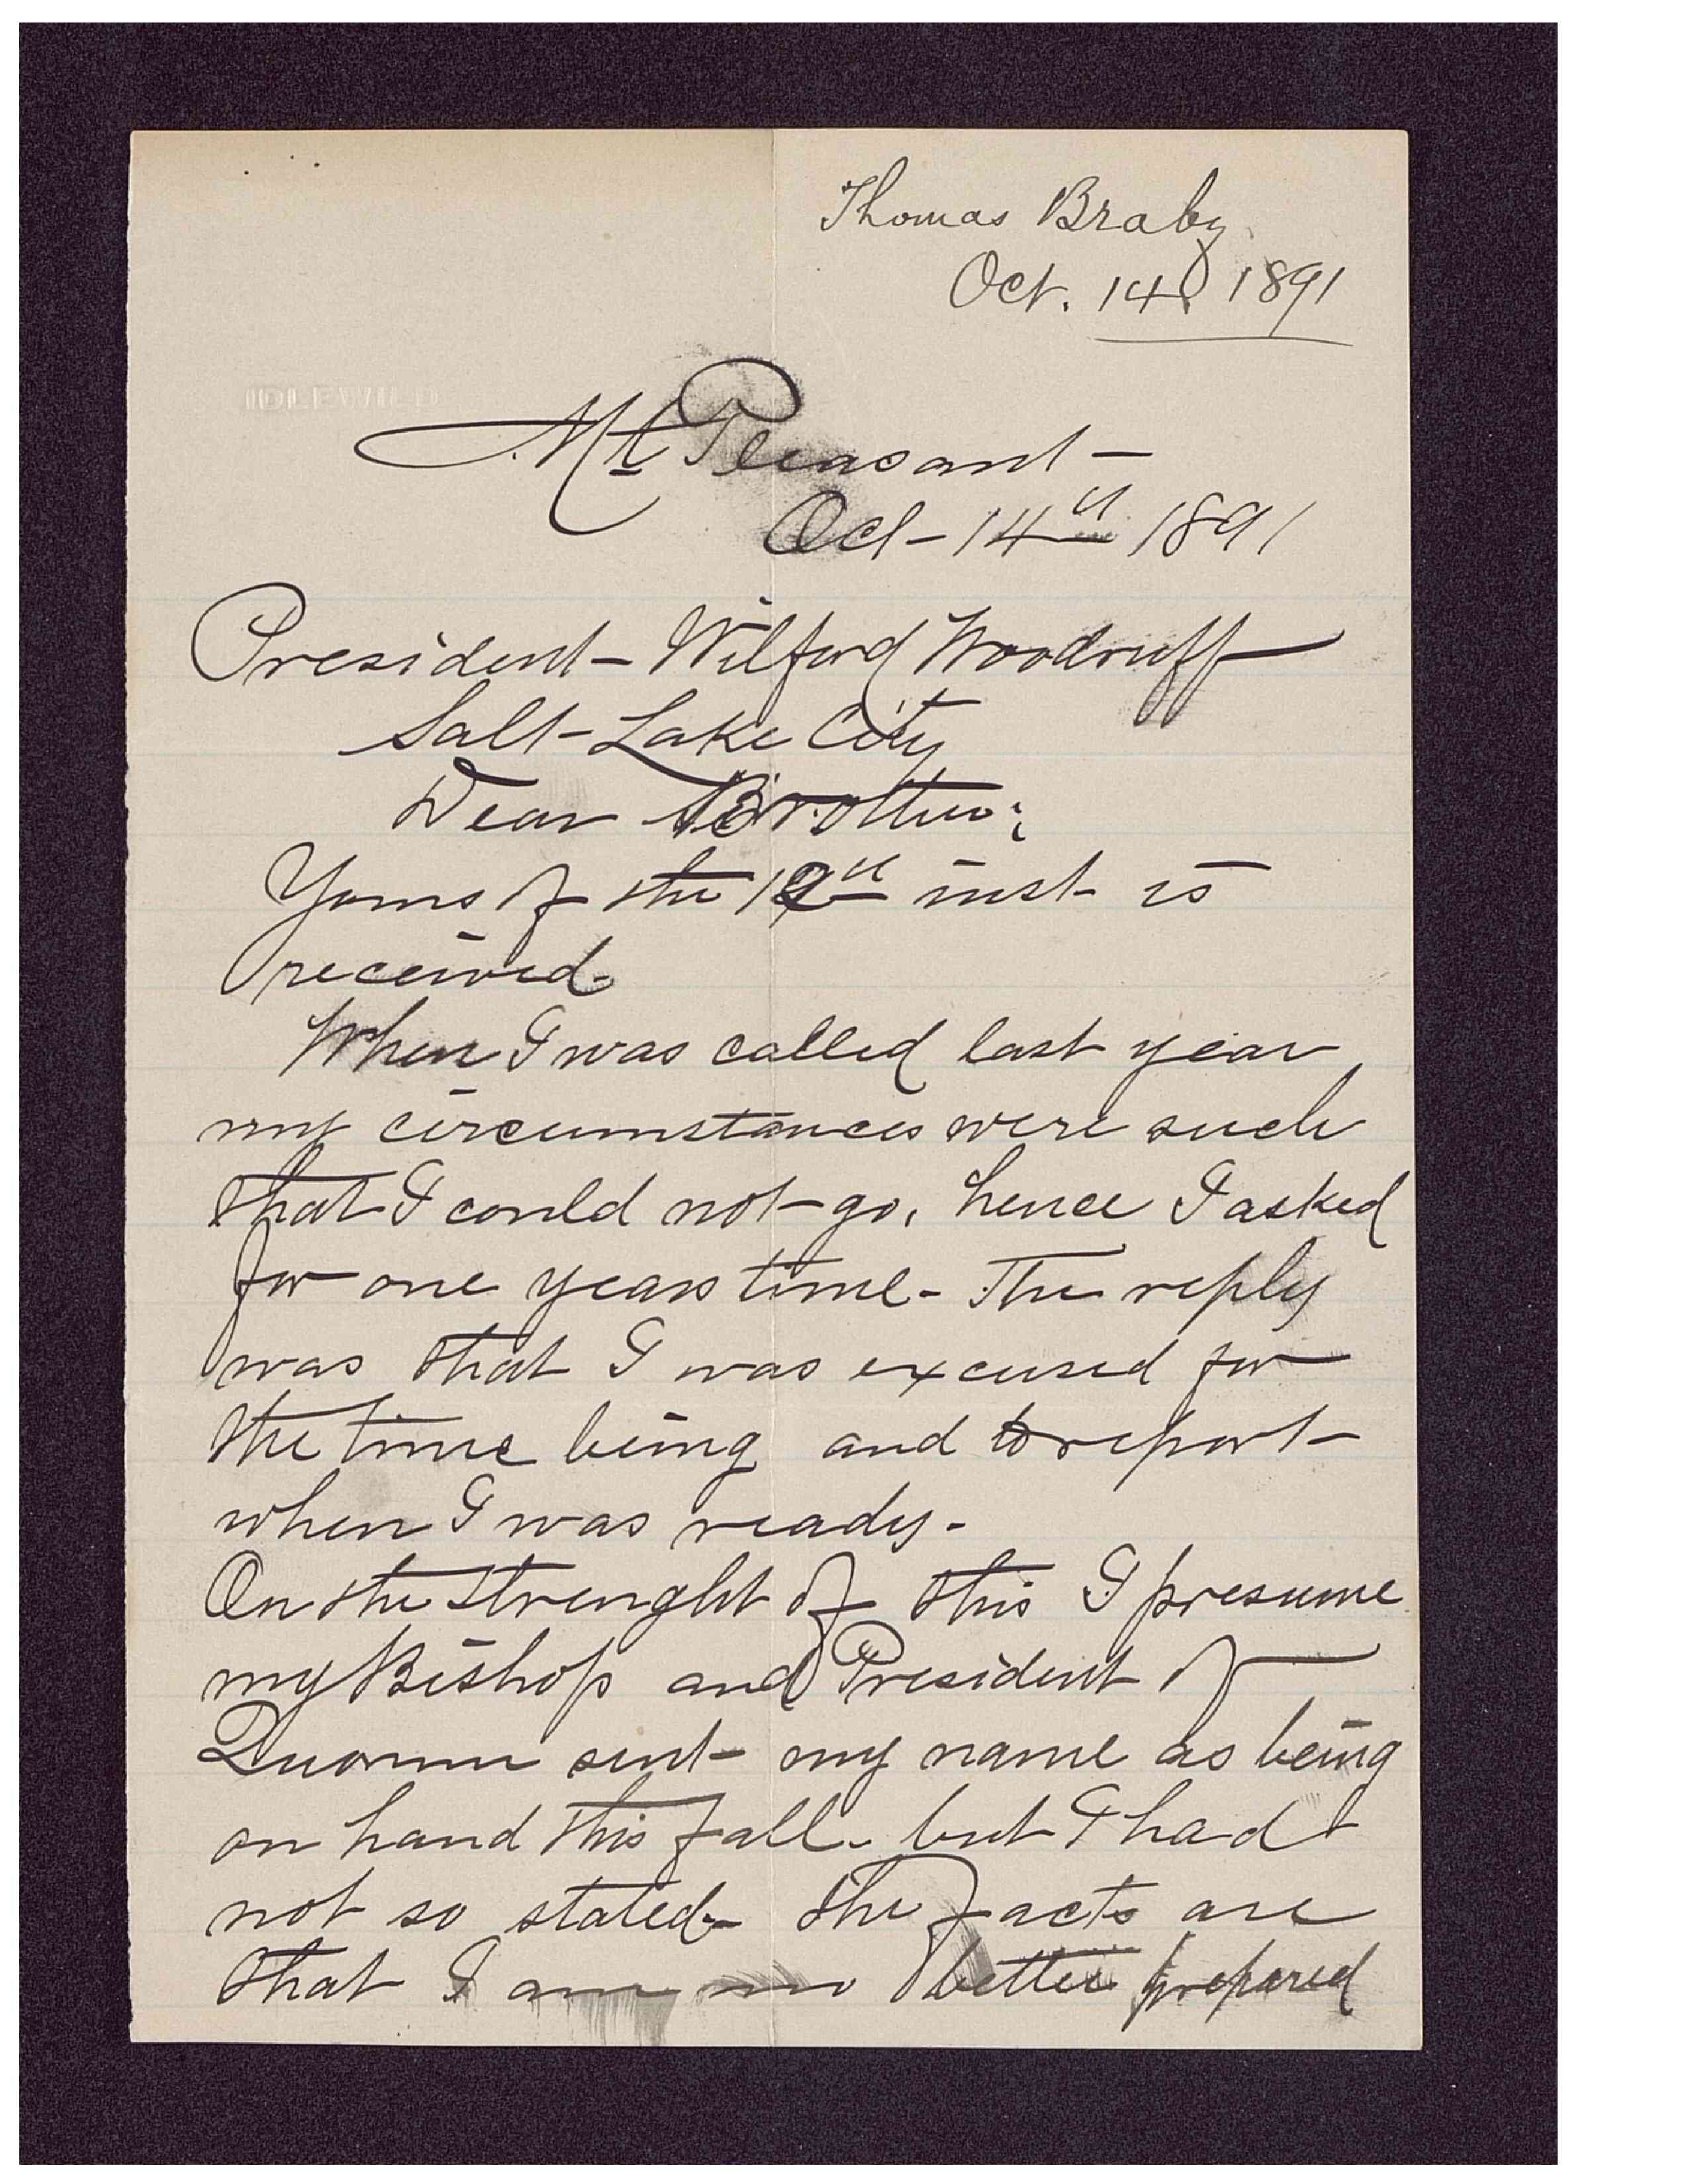 Thomas Braby
Oct. 14 1891
IDLEWILD
Mt Pleasant –
Oct – 14th 1891
President – Wilford Woodruff
Salt – Lake City
Dear Brother:
Yours of the 12th inst – is
received.
When I was called last year
my circumstances were such
that I could not – go, hence I asked
for one years time – The reply
was that I was excused for
the time being and to report –
when I was ready –
On the strenght of this I presume
my Bishop and President of
Quorum sent – my name as being
on hand this fall – but I had
not so stated – the facts are
that I am no better prepared